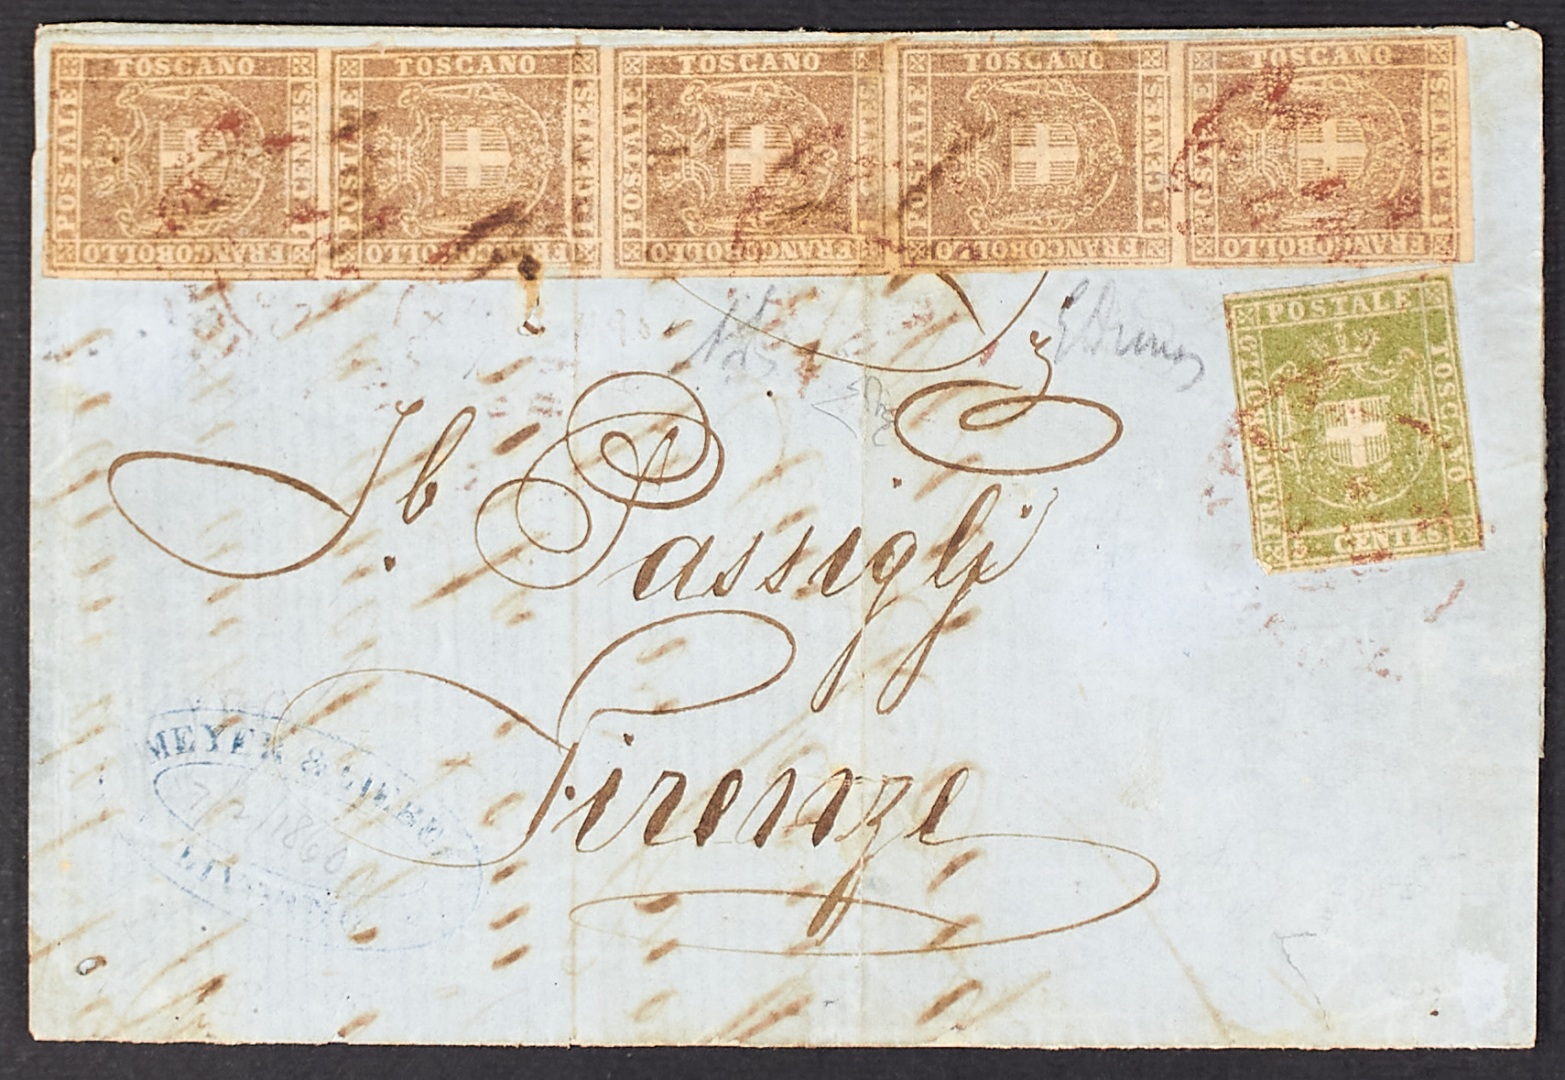 FRANCOBOLLO POSTALE TOSCANO 1 CENTES
FRANCOBOLLO POSTALE TOSCANO 1 CENTES
FRANCOBOLLO POSTALE TOSCANO 1 CENTES
FRANCOBOLLO POSTALE TOSCANO 1 CENTES
FRANCOBOLLO POSTALE TOSCANO 1 CENTES
FRANCOBOLLO POSTALE TOSCANO 5 CENTES
J. b. Passigli
Firenze
MEYER &
7/2/1860